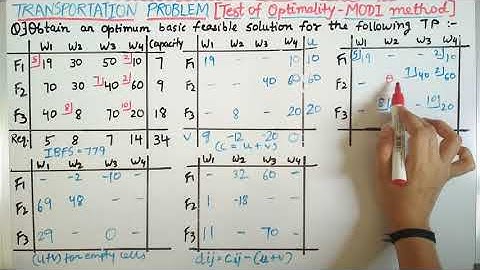 TRANSPORTATION PROBLEM [Test of Optimality - MODI method]
Q] Obtain an optimum basic feasible solution for the following TP :-
W1 W2 W3 W4 Capacity
F1 5 19 30 50 2 10 7
F2 70 30 7 40 2 60 9
F3 40 8 8 70 10 20 18
Req. 5 8 7 14 34
IBFS = 779
W1 W2 W3 W4 u
F1 19 - - 10 10
F2 - - 40 60 60
F3 - 8 - 20 20
V 9 -12 -20 0
(c = u + v)
W1 W2 W3 W4
F1 5 19 - - 2 10
F2 - θ 7 40 2 60
F3 - 8 - 10 20
W1 W2 W3 W4
F1 - -2 -10 -
F2 69 48 - -
F3 29 - 0 -
(u+v) for empty cells
W1 W2 W3 W4
F1 - 32 60 -
F2 1 -18 - -
F3 11 - 70 -
dij = cij - (u+v)